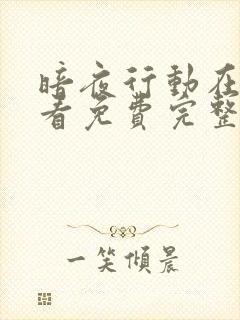 暗夜行動在
看免費完整
一笑傾晨